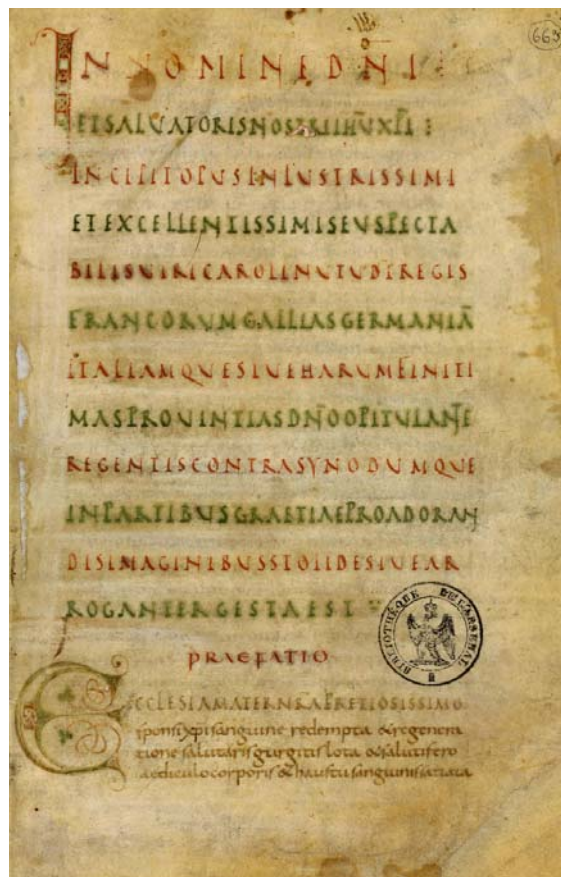 663
IN NOMINE DNI
ETSALVATORISNOSTRIIHUXPI :
INCIPITOPUSINLUSTRISSIMI
ETEXCELLENTISSIMISEUSPECTA
BILISUIRICAROLINUTUDIREGIS
FRANCORUMGALLIASGERMANIĀ
ITALIAMQUESIUEHARUMFINITI
MASPROUINTIASDN̄OOPITULANTE
REGENTISCONTRASYNODUMQUE
INPARTIBUSGRAETIAEPROADORAN
DISIMAGINIBUSSTOLIDESIUEAR
ROGANTERGESTAEST
PRAEFATIO
ECCLESIAMATERNRĀPRETIOSISSIMO
sponsi xp̄i sanguine redempta & regenera
tione salutaris gurgitis lota & salutifero
aediculo corporis & haustu sanguinis satiata
BIBLIOTHÈQUE DE L'ARSENAL